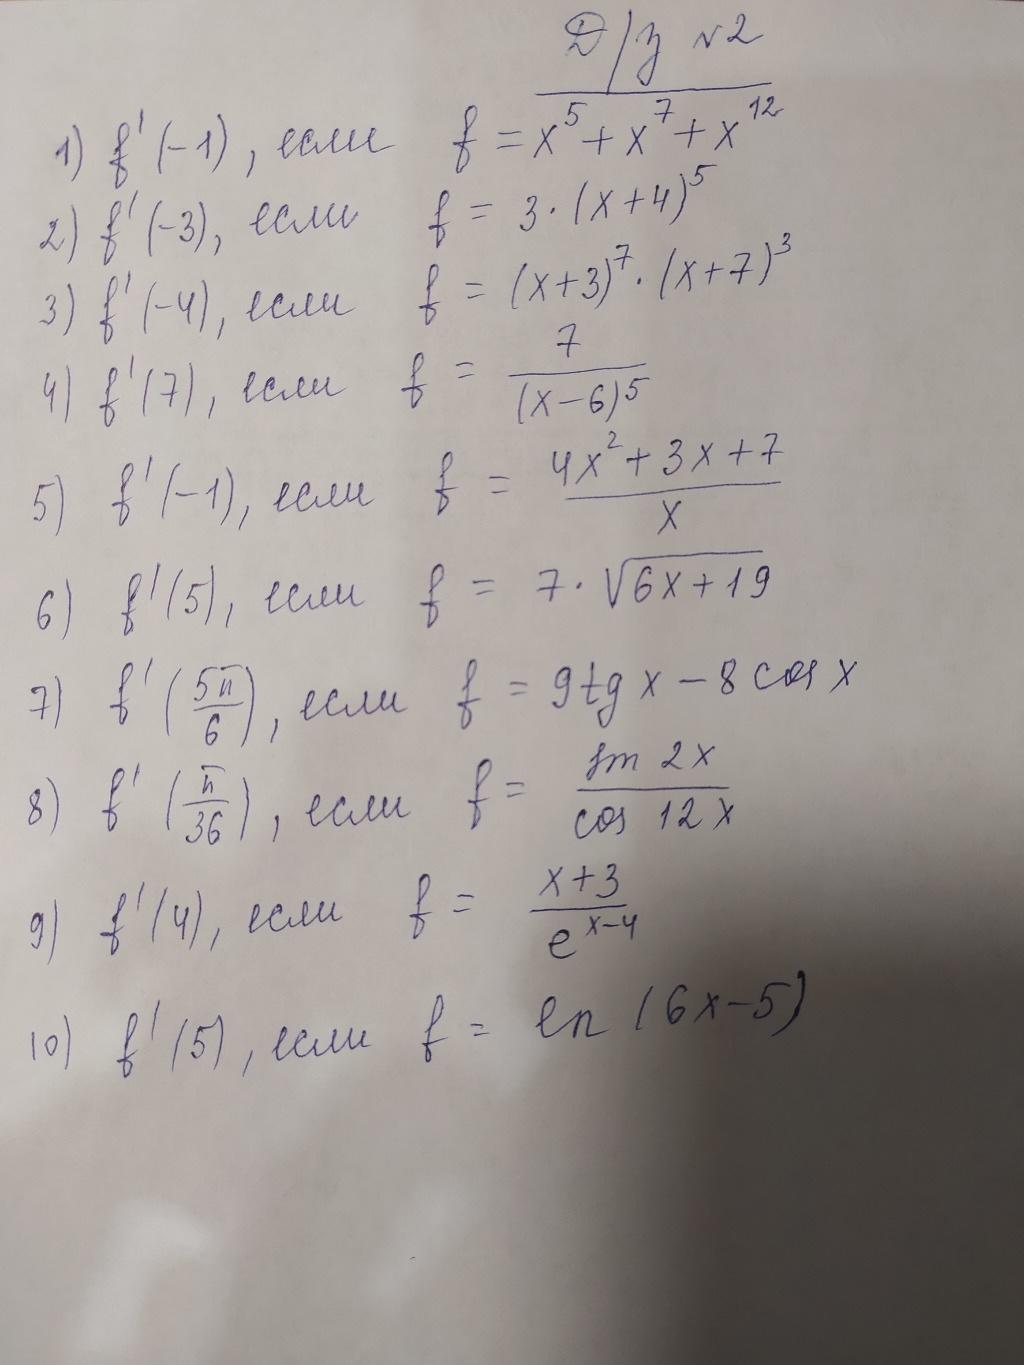 Д/з №2
1) f'(-1), если f = x^5 + x^7 + x^12
2) f'(-3), если f = 3·(x+4)^5
3) f'(-4), если f = (x+3)^7·(x+7)^3
4) f'(7), если f = 7/(x-6)^5
5) f'(-1), если f = (4x^2+3x+7)/x
6) f'(5), если f = 7·√(6x+19)
7) f'(5π/6), если f = 9tg x - 8 cos x
8) f'(π/36), если f = sin 2x/cos 12x
9) f'(4), если f = (x+3)/e^(x-4)
10) f'(5), если f = ln (6x-5)